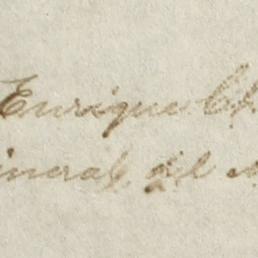 Enrique
ineral del